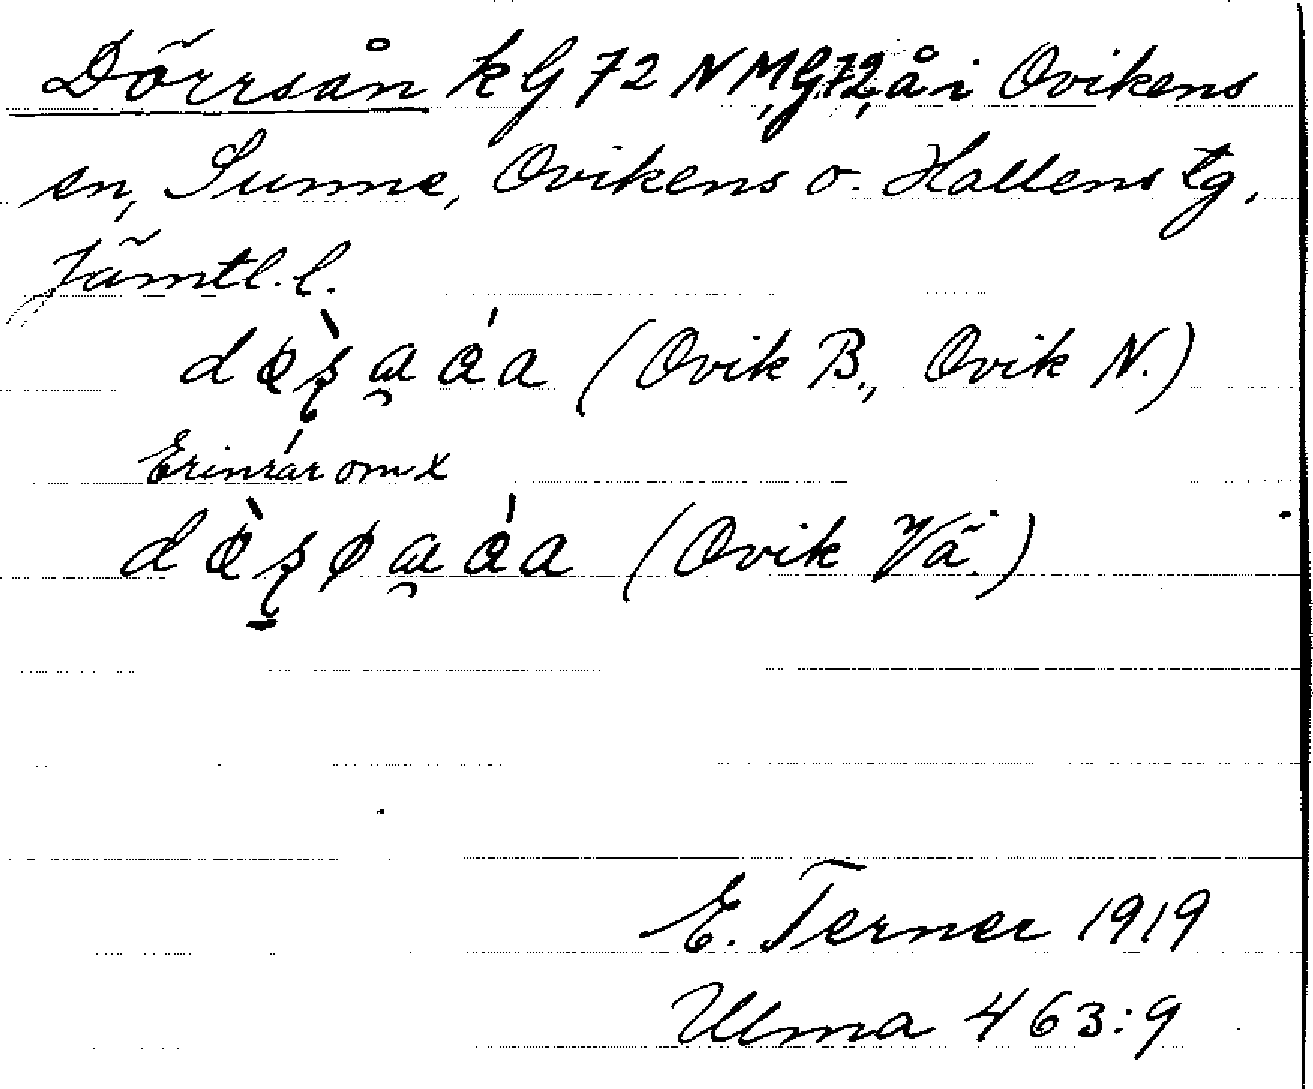 Dörrsån k G 72 N M, G72, å i Ovikens
sn, Sunne, Ovikens o. Hallens tg,
Jämtl. l.
(Ovik B., Ovik N.)
Erinrar om x
(Ovik Vä.)
E. Terner 1919
Ulma 463:9